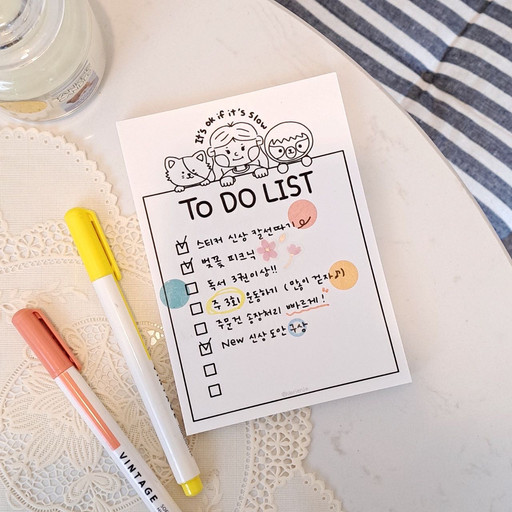 It's ok if it's slow
TO DO LIST
스티커 신상 칼선따기
벚꽃 피크닉
독서 3권이상!!
주 3회 운동하기 (많이 걷자♪)
주문건 송장처리 빠르게!
New 신상 도안 구상
VINTAGE